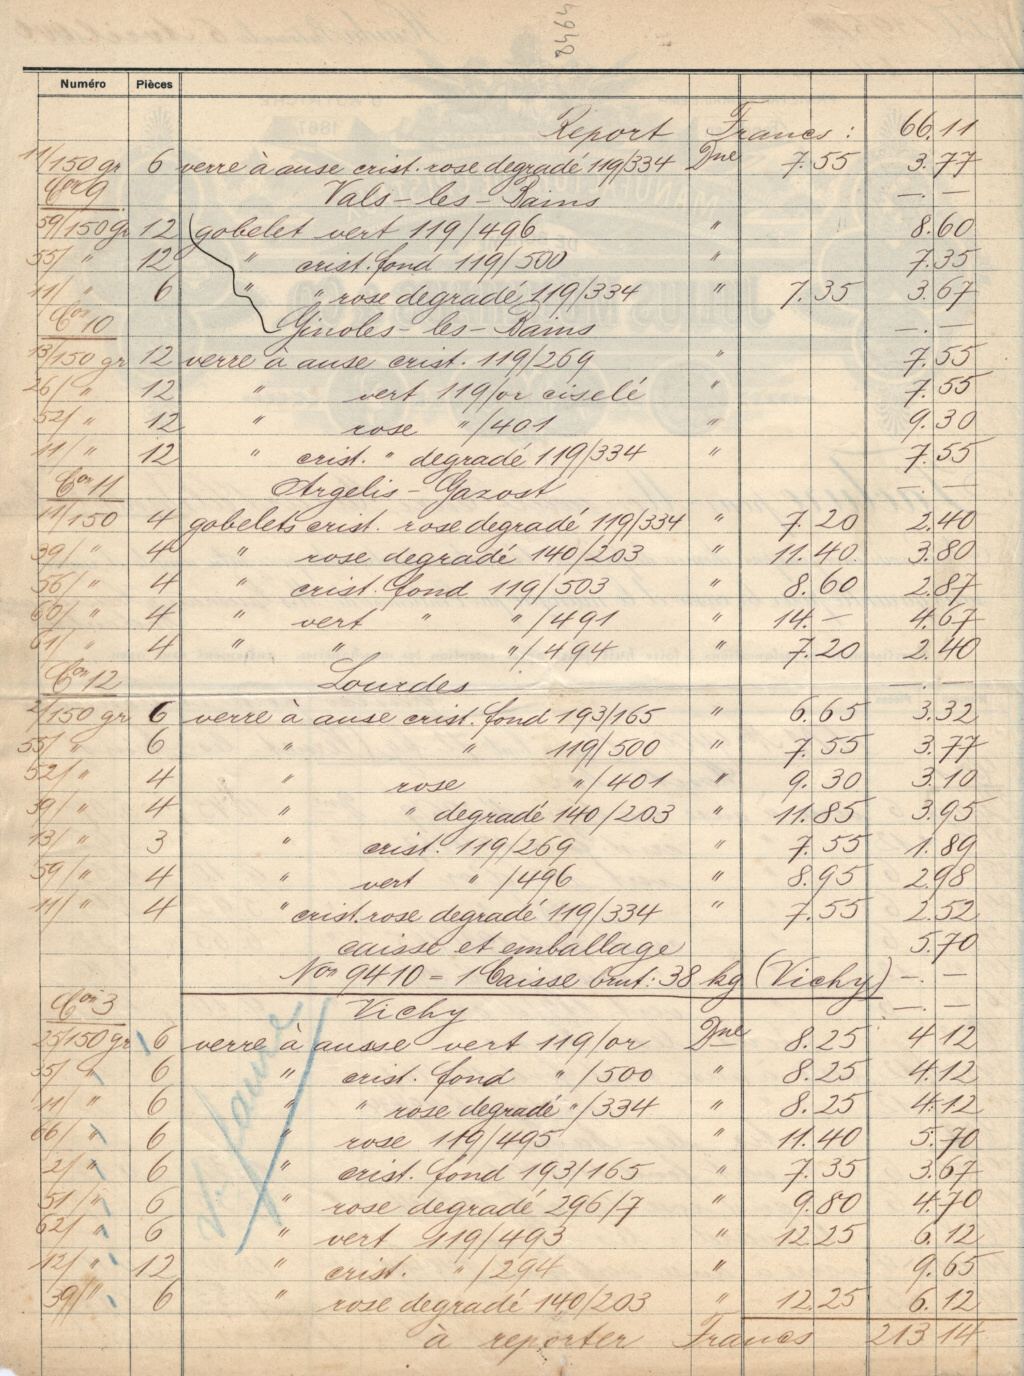 8494
Numéro Pièces
Report Francs : 66.11
11/150 gr 6 verre à anse crist. rose degradé 119/334 Dne 7.55 3.77
Con 9 Vals-les-Bains —.—
59/150 gr 12 gobelet vert 119/496 " 8.60
55/ " 12 " crist. fond 119/500 " 7.35
11/ " 6 " " rose degradé 119/334 " 7.35 3.67
Con 10 Ginoles-les-Bains —.—
13/150 gr 12 verre à anse crist. 119/269 " 7.55
26/ " 12 " vert 119/or ciselé " 7.55
52/ " 12 " rose "/401 " 9.30
11/ " 12 " crist. " degradé 119/334 " 7.55
Con 11 Argelis-Gazost —.—
11/150 4 gobelets crist. rose degradé 119/334 " 7.20 2.40
39/ " 4 " rose degradé 140/203 " 11.40 3.80
56/ " 4 " crist. fond 119/503 " 8.60 2.87
60/ " 4 " vert " "/491 " 14.— 4.67
61/ " 4 " " "/494 " 7.20 2.40
Con 12 Lourdes —.—
2/150 gr 6 verre à anse crist. fond 193/165 " 6.65 3.32
55/ " 6 " " 119/500 " 7.55 3.77
52/ " 4 " rose "/401 " 9.30 3.10
39/ " 4 " " degradé 140/203 " 11.85 3.95
13/ " 3 " crist. 119/269 " 7.55 1.89
59/ " 4 " vert " /496 " 8.95 2.98
11/ " 4 " crist. rose degradé 119/334 " 7.55 2.52
caisse et emballage 5.70
Non 9410 = 1 Caisse brut: 38 kg (Vichy) —.—
Con 3 Vichy —.—
25/150 gr 6 verre à ausse vert 119/or Dne 8.25 4.12
55/ " 6 " crist. fond " /500 " 8.25 4.12
11/ " 6 " " rose degradé "/334 " 8.25 4.12
66/ " 6 " rose 119/495 " 11.40 5.70
2/ " 6 " crist. fond 193/165 " 7.35 3.67
51/ " 6 " rose degradé 296/7 " 9.80 4.70
62/ " 6 " vert 119/493 " 12.25 6.12
12/ " 12 " crist. " /294 " 9.65
39/ " 6 " rose degradé 140/203 " 12.25 6.12
à reporter Francs 213.14